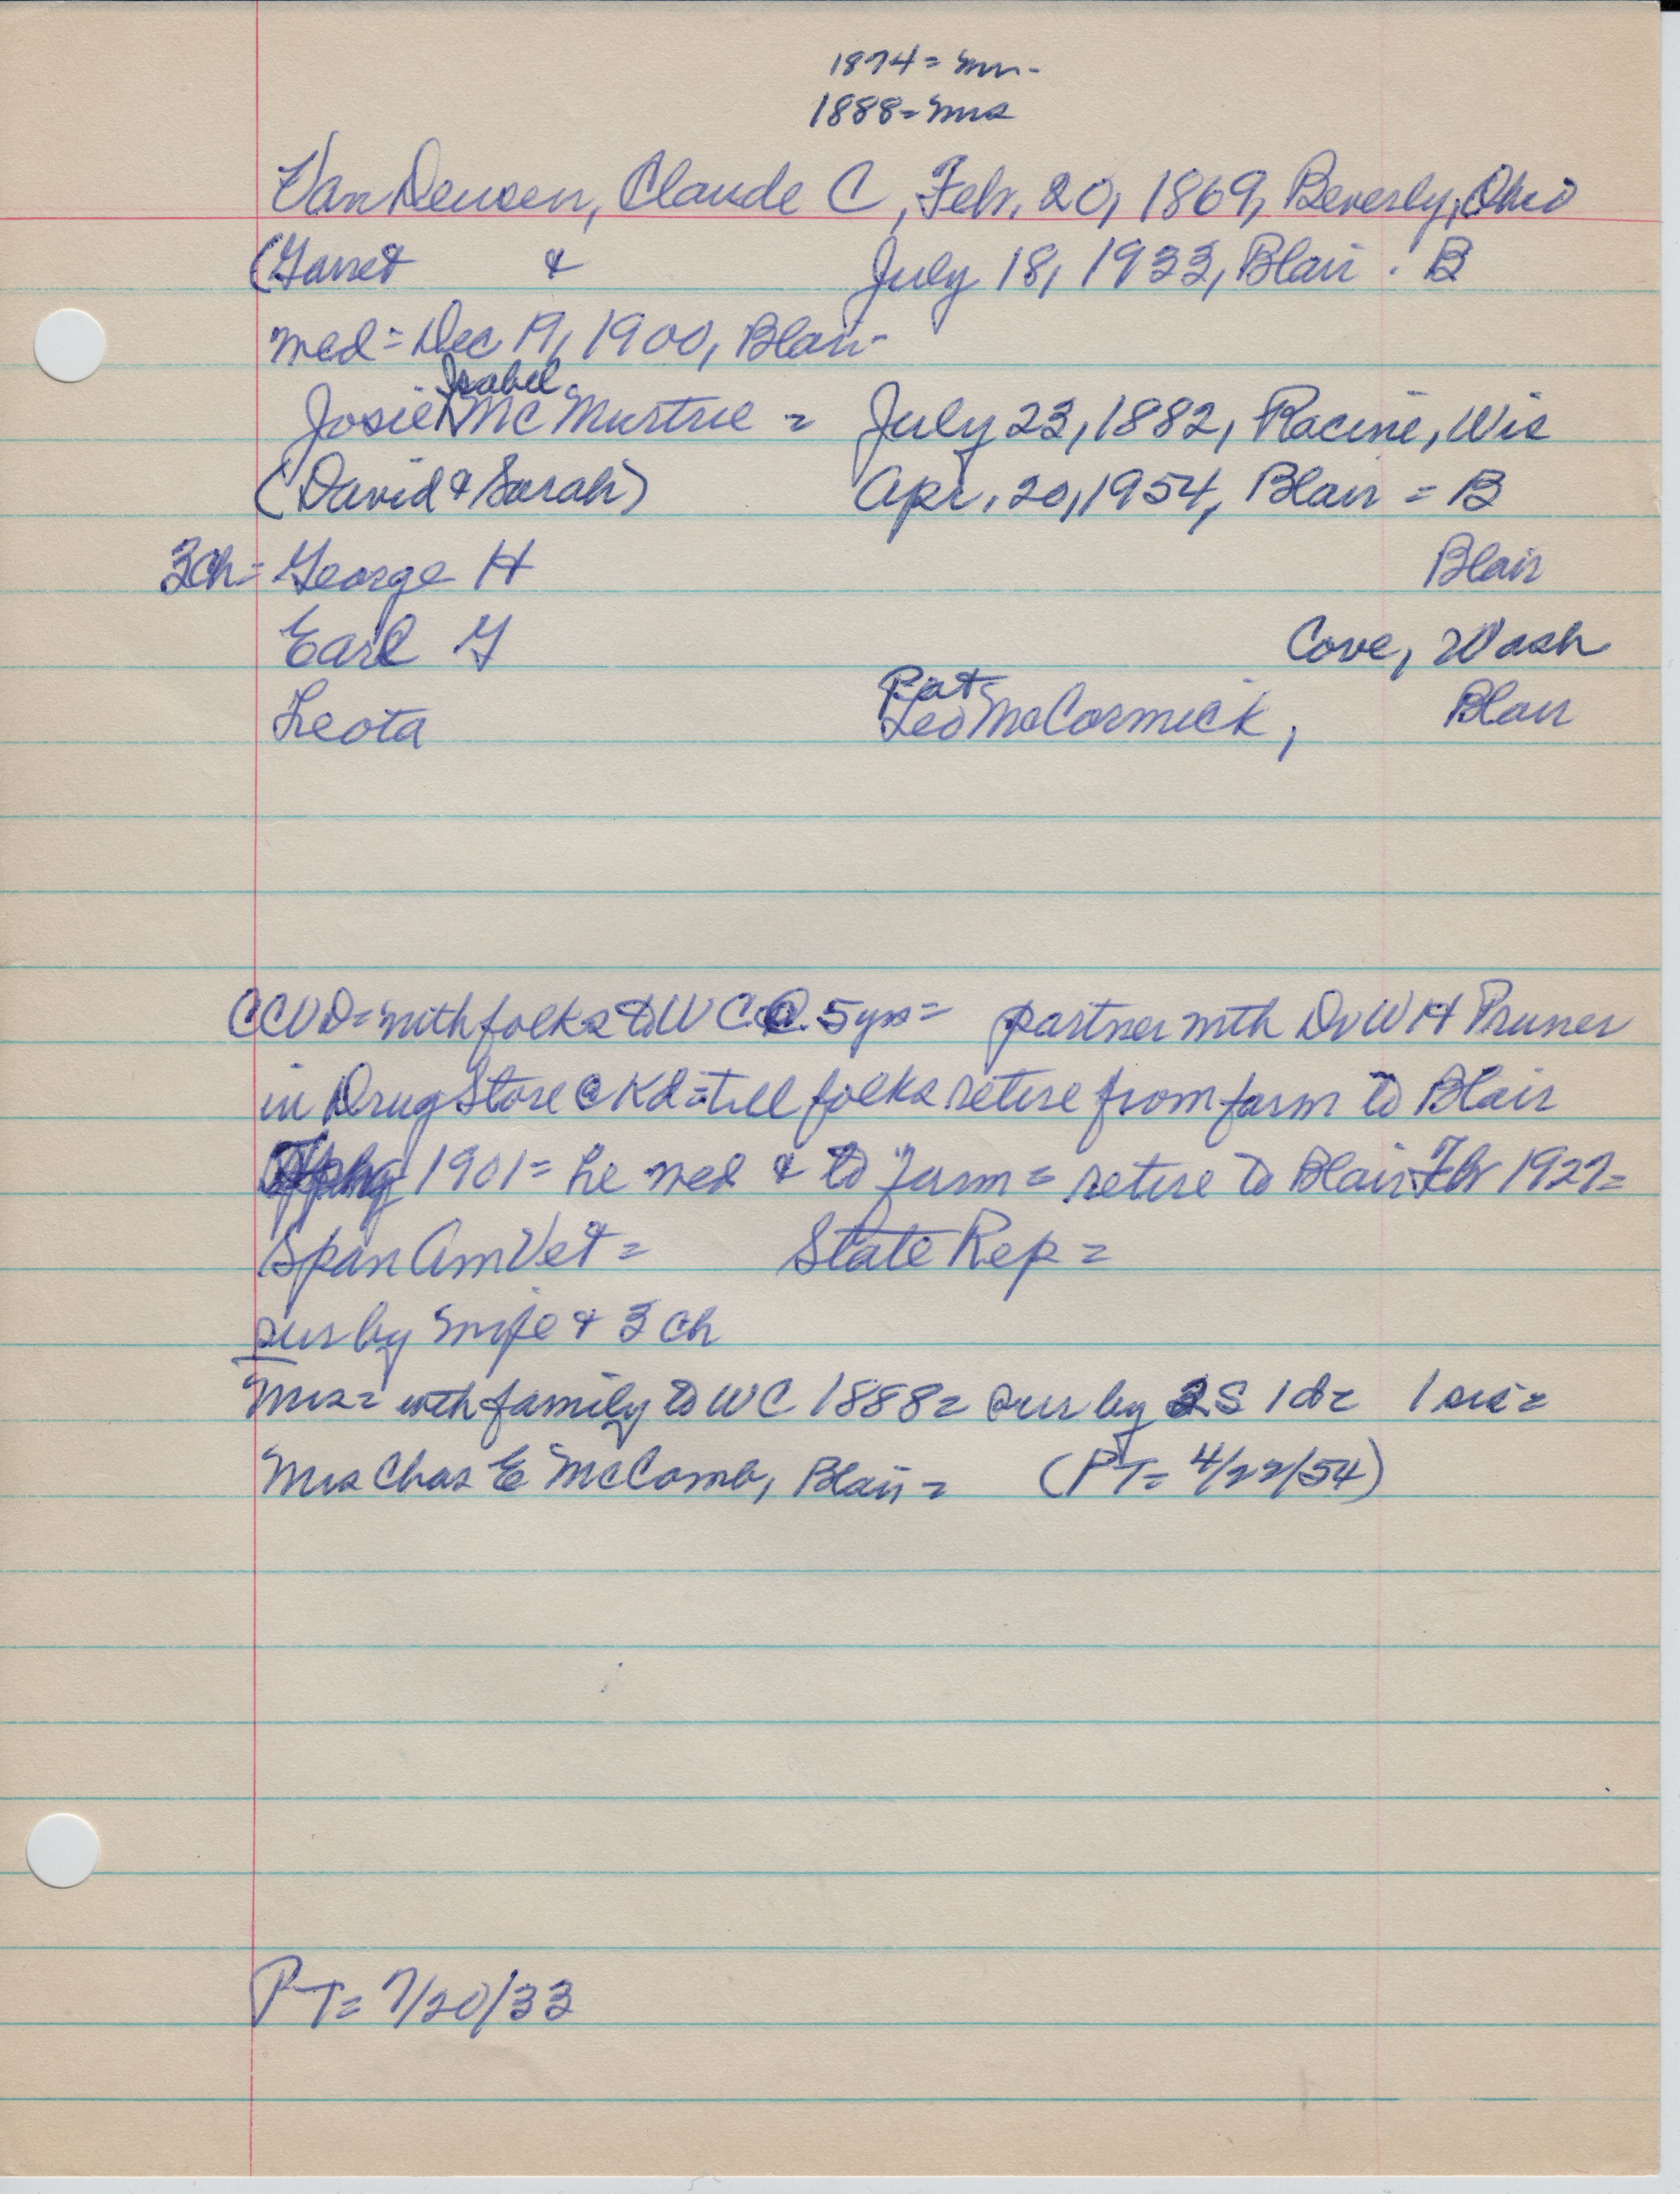 1874 = mr.
1888 = mrs
Van Deusen, Claude C, Feb. 20, 1869, Beverly, Ohio
(Garret & July 18, 1933, Blair. B
med = Dec 19, 1900, Blair
Isabel
Josie Mc Murtrie = July 23, 1882, Racine, Wis
(David & Sarah) Apr. 20, 1954, Blair = B
3ch = George H Blair
Earl G Cove, Wash
Pat
Leota Leo McCormick, Blair
CCVD = with folks to WC @ 5 yrs = partner with Dr W H Pruner
in Drug Store @ Kd = till folks retire from farm to Blair
1901 = he med & to farm = retire to Blair Feb 1927 =
Span Am Vet = State Rep =
sur by wife & 3 ch
Mrs = with family to WC 1888 = sur by 2S 1d = 1 sis =
Mrs Chas E McComb, Blair = (PT = 4/22/54)
PT = 7/20/33